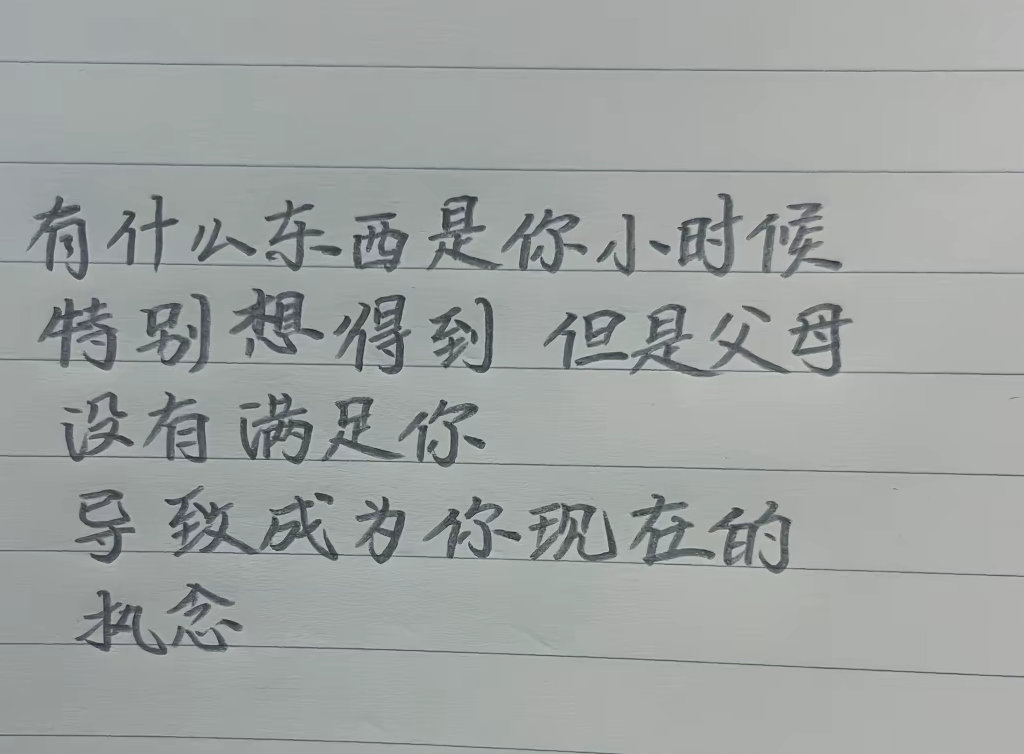 有什么东西是你小时候
特别想得到 但是父母
没有满足你
导致成为你现在的
执念